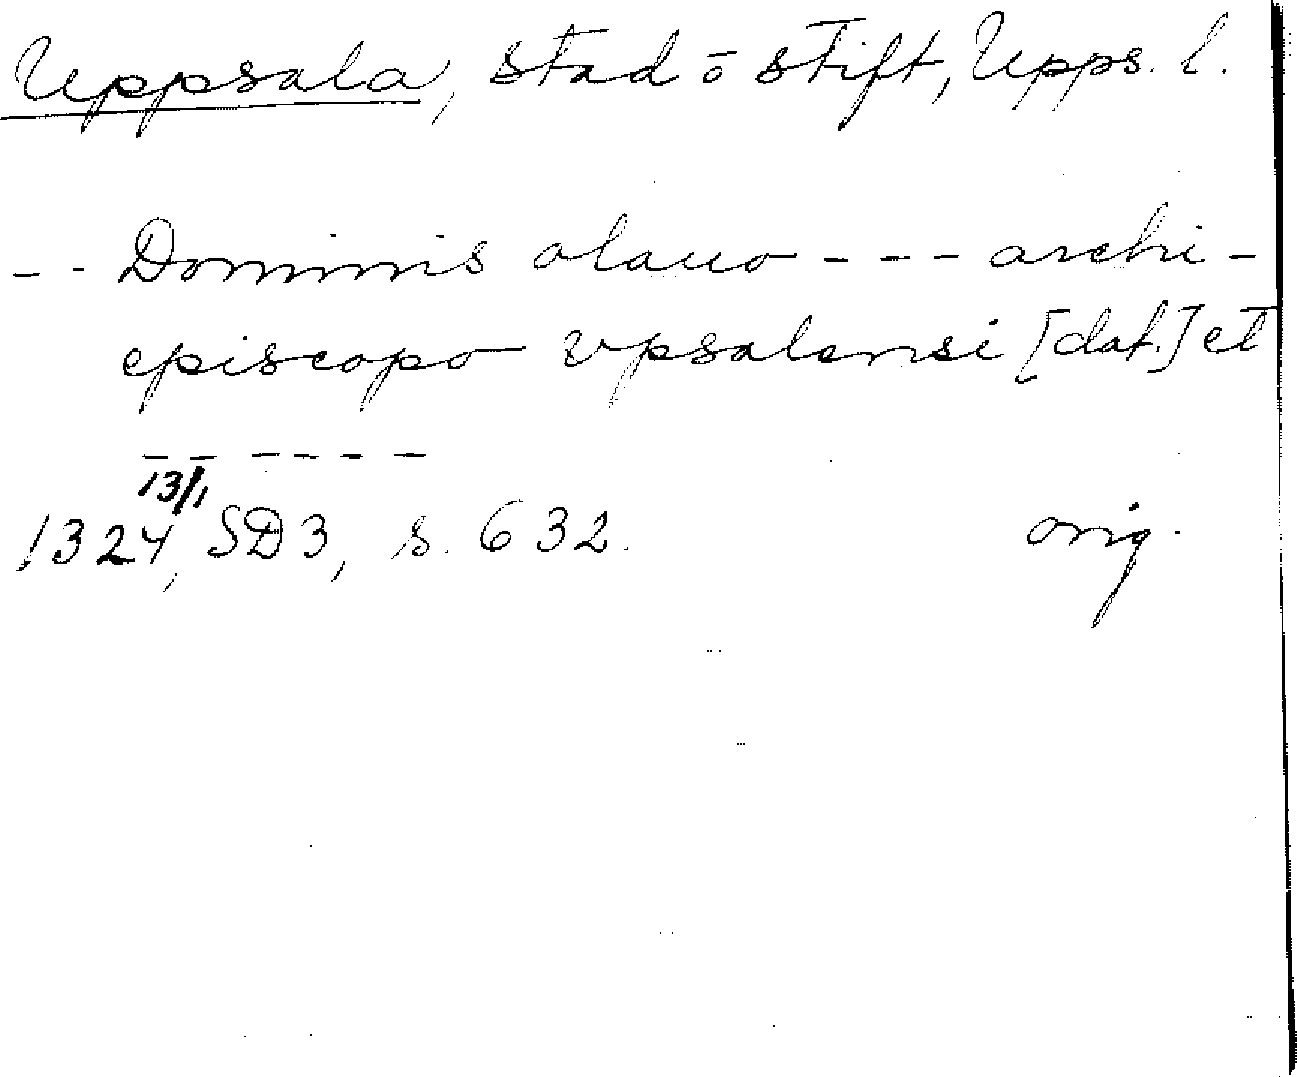 Uppsala, stad ō stift, Upps. l.
-- Dominis olauo --- archi-
episcopo vpsalensi [dat.] et
------
13/1
1324, SD3, s. 632. orig.